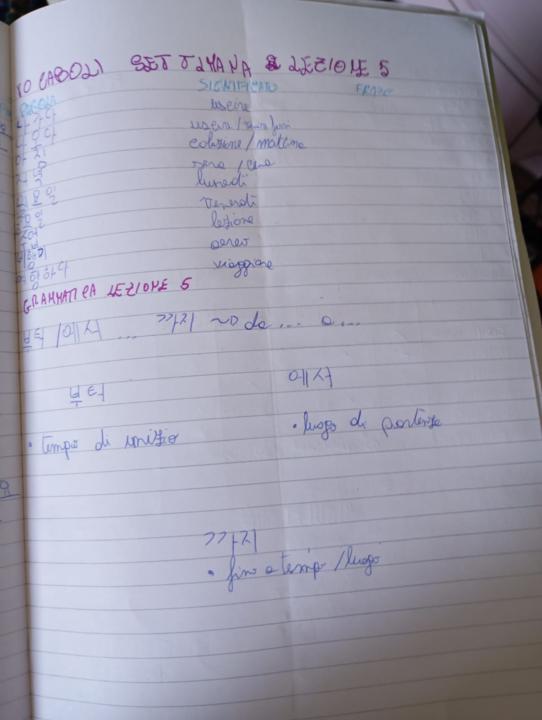 VOCABOLI SETTIMANA LEZIONE 5
PAROLA SIGNIFICATO FRASE
uscire
uscire / venire fuori
아침 colazione / mattina
저녁 sera / cena
월요일 lunedì
금요일 venerdì
수업 lezione
비행기 aereo
여행하다 viaggiare
GRAMMATICA LEZIONE 5
부터 / 에서 ... 까지 ~D da ... a ...
부터 에서
• tempo di inizio • luogo di partenza
까지
• fino a tempo / luogo